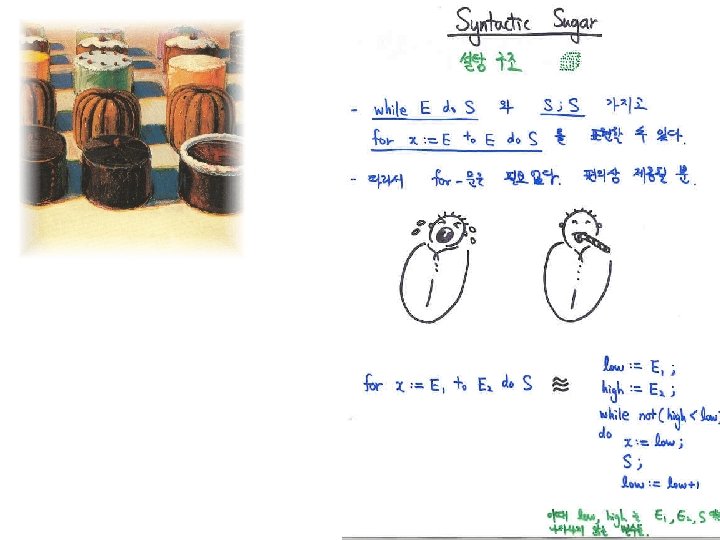 Syntactic Sugar
설탕 구조
- while E do S 와 S ; S 가지고
for x := E to E do S 를 표현할 수 있다.
- 따라서 for-문은 필요없다. 편의상 제공될 뿐.
for x := E₁ to E₂ do S ≋
low := E₁ ;
high := E₂ ;
while not(high < low)
do
x := low ;
S ;
low := low+1
이때 low, high 는 E₁, E₂, S 에
나타나지 않는 변수들.